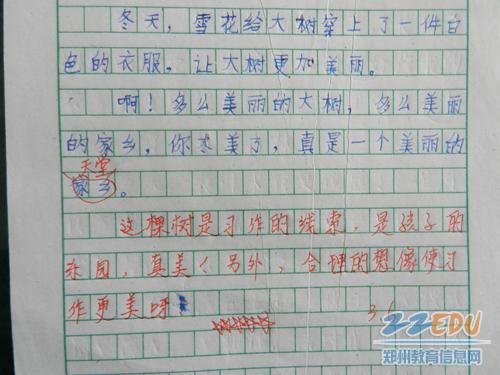 冬天，雪花给大树穿上了一件白
色的衣服。让大树更加美丽。
啊！多么美丽的大树，多么美丽
的家乡，你太美了，真是一个美丽的
天堂
家乡。
这棵树是习作的线索，是孩子的
乐园，真美！另外，合理的想像使习
作更美呀
3.1
ZZEDU
郑州教育信息网